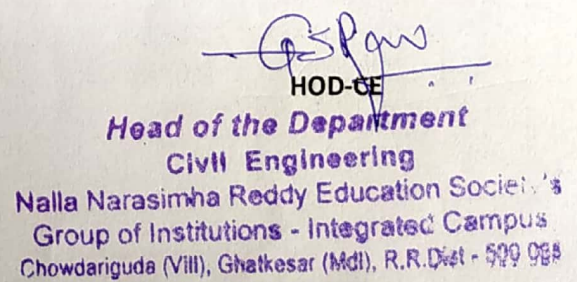 HOD-CE
Head of the Department
Civil Engineering
Nalla Narasimha Reddy Education Society's
Group of Institutions - Integrated Campus
Chowdariguda (Vill), Ghatkesar (Mdl), R.R.Dist -